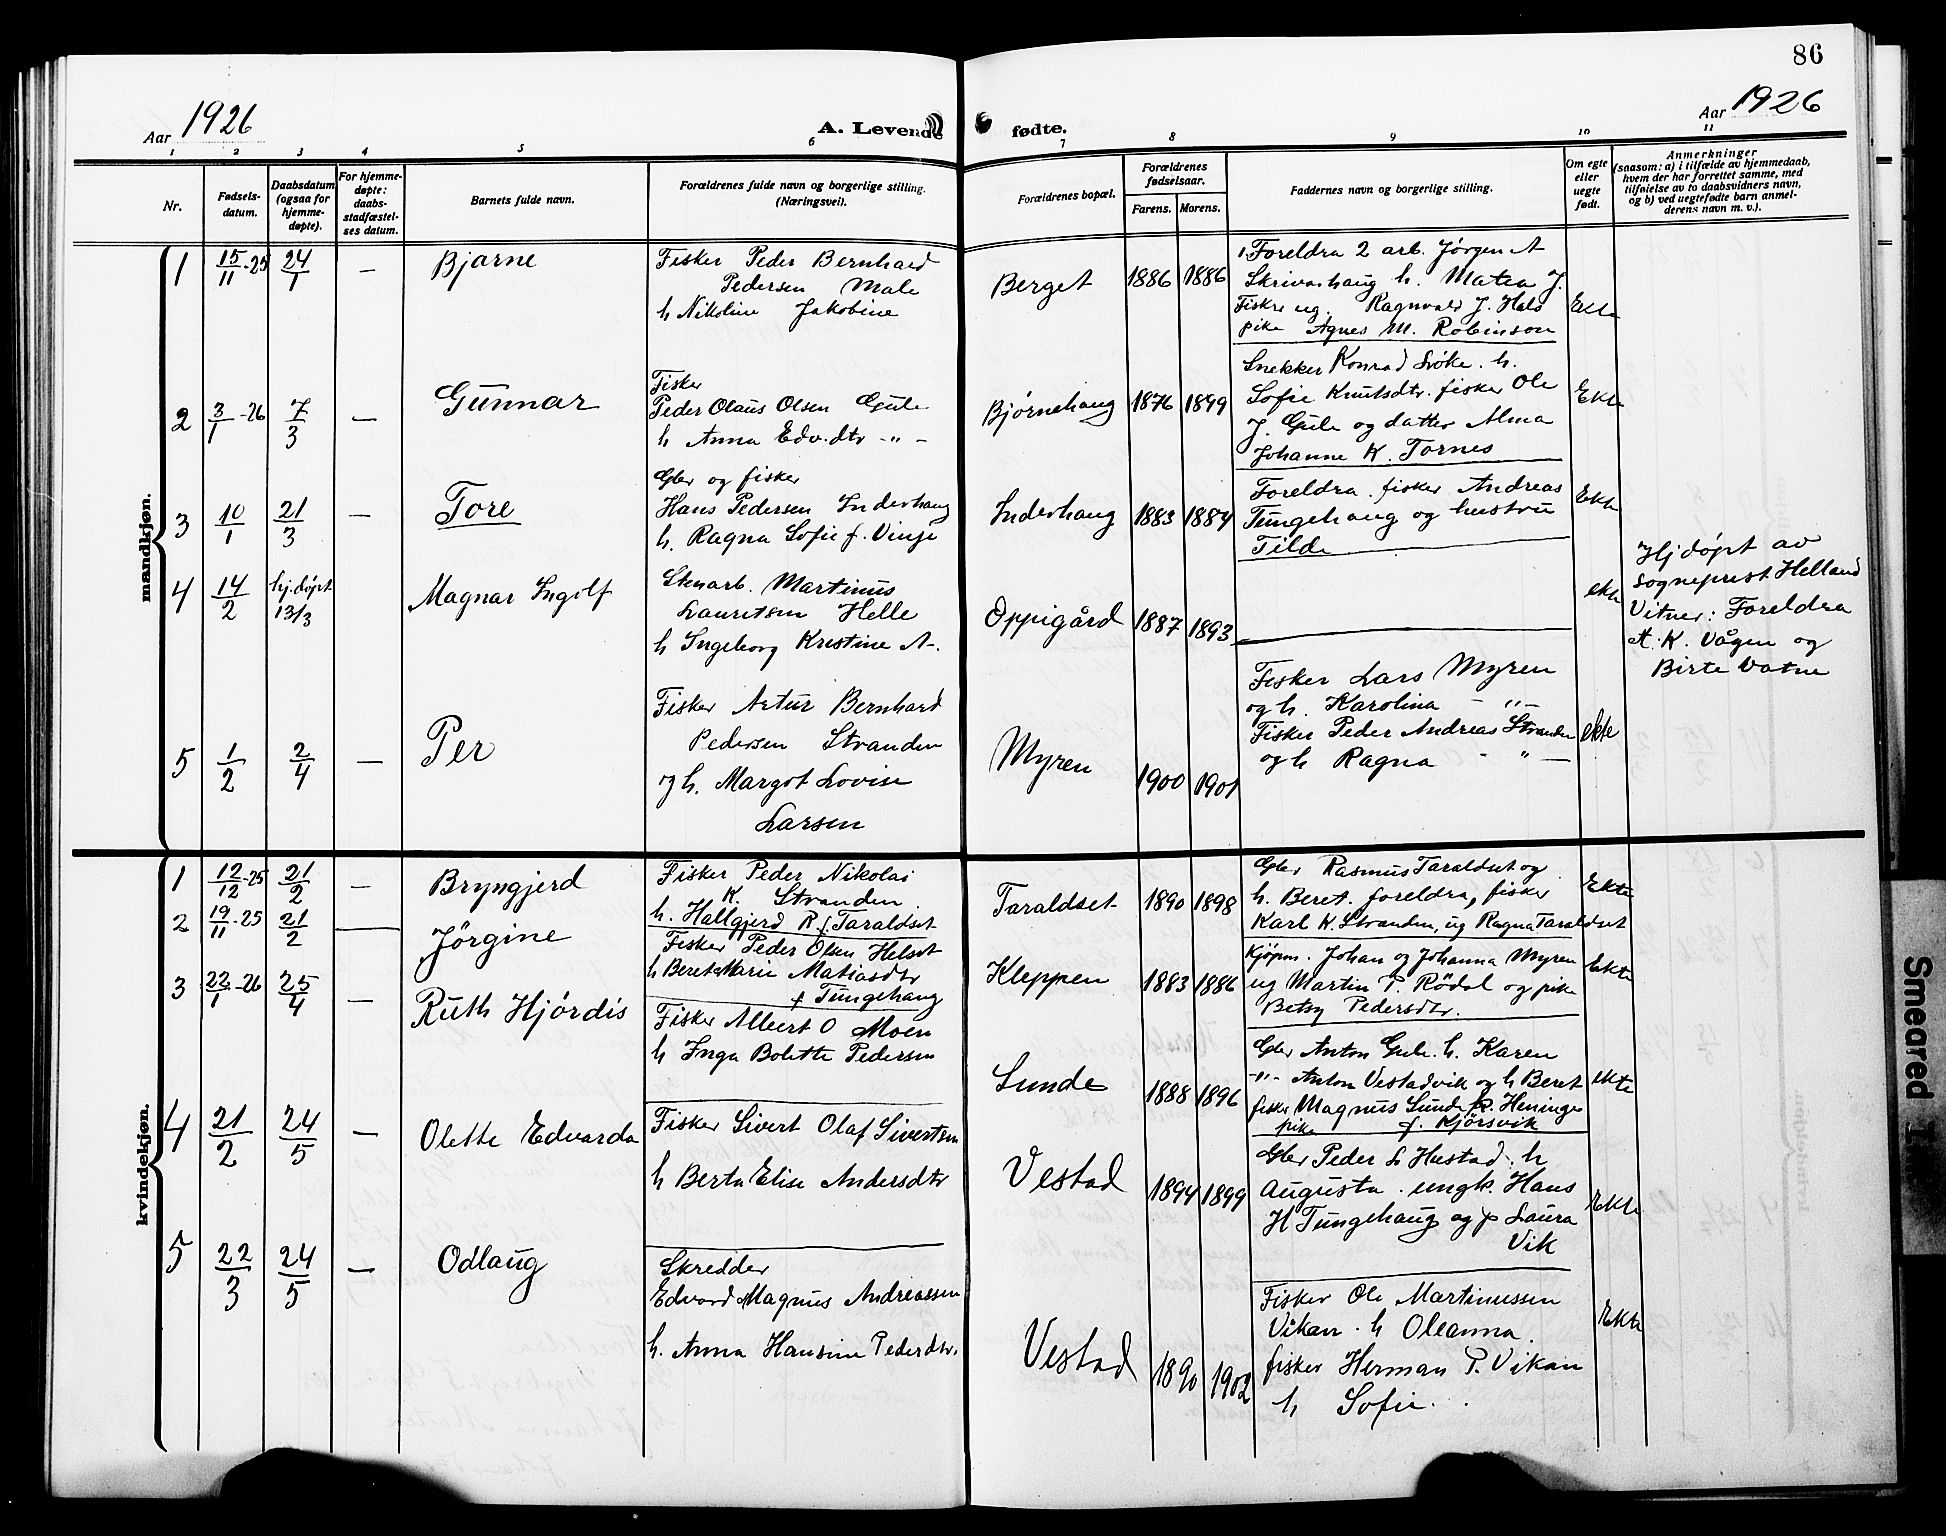 86
Aar 1926
A. Levende fødte.
Aar 1926
1 2 3 4 5 6 7 8 9 10 11
Nr.
Fødsels-
datum.
Daabsdatum
(ogsaa for
hjemme-
døpte).
For hjemme-
døpte:
daabs-
stadfæstel-
ses datum.
Barnets fulde navn.
Forældrenes fulde navn og borgerlige stilling.
(Næringsvei).
Forældrenes bopæl.
Forældrenes
fødselsaar.
Farens. Morens.
Faddernes navn og borgerlige stilling.
Om egte
eller
uegte
født.
Anmerkninger
(saasom: a) i tilfælde av hjemmedaab,
hvem der har forrettet samme, med
tilføielse av to daabsvidners navn,
og b) ved uegtefødte barn anmel-
derens navn m. v.).
mandkjøn.
1 15/11-25 24/1 — Bjarne
Fisker Peder Bernhard
Pedersen Male
h Nikoline Jakobine
Berget 1886 1886
1. Foreldra 2 arb. Jørgen A
Skrivarhaug h. Matea J.
Fisker ug. Ragnvald J. Hals
pike Agnes M. Robinson
Ekte
2 3/1-26 7/3 — Gunnar
Fisker
Peder Olaus Olsen Gule
h Anna Edv.dtr -"-
Bjørnehaug 1876 1899
Snekker Konrad Svöke. h.
Sofie Knutsdtr. fisker Ole
J. Gule og datter Alma
Johanne K. Tornes
Ekte
3 10/1 21/3 — Tore
Gbr og fisker
Hans Pedersen Inderhaug
h. Ragna Sofie f. Vinje
Inderhaug 1883 1884
Foreldra. fisker Andreas
Tungehaug og hustru
Tilde
Ekte
4 14/2 hj.døpt
13/3
Magnar Ingolf
Stenarb. Martinus
Lauritsen Helle
h Ingeborg Kristine A-.
Oppigård 1887 1893
ekte
Hj døpt av
sogneprest Helland
Vitner: Foreldra
A. K. Vågen og
Birte Vatne
5 1/2 2/4 — Per
Fisker Artur Bernhard
Pedersen Stranden
og h. Margot Lovise
Larsen
Myren 1900 1901
Fisker Lars Myren
og h. Karolina -"-
Fisker Peder Andreas Stranden
og h Ragna -"-
ekte
kvindekjøn.
1 12/12-25 21/2 — Bryngjerd
Fisker Peder Nikolai
K. Stranden
h. Hallgjerd R. f. Taraldset
Taraldset 1890 1898
Gbr Rasmus Taraldset og
h. Beret. foreldra, fisker
Karl K. Stranden, ug Ragna Taraldset
Ekte
2 19/11-25 21/2 — Jörgine
Fisker Peder Olsen Helset
h Beret Marie Matiasdtr
f Tungehaug
Kleppen 1883 1886
Kjøpm. Johan og Johanna Myren
ug Martin P. Rödal og pike
Betsy Pedersdtr.
Ekte
3 22/1-26 25/4 — Ruth Hjördis
Fisker Albert O Moen
h Inga Bolette Pedersen
Sunde 1888 1896
Gbr Anton Gule. h. Karen
-"- Anton Vestadvik og h Beret
fisker Magnus Sunde
pike f. Kjörsvik
ekte
4 21/2 24/5 — Olette Edvarda
Fisker Sivert Olaf Sivertsen
h Berta Elise Andersdtr
Vestad 1894 1899
Gbr Peder L Hustad. h
Augusta. ungk. Hans
H Tungehaug og p Laura
Vik
Ekte
5 22/3 24/5 — Odlaug
Skredder
Edvard Magnus Andreassen
h. Anna Hansine Pedersdtr.
Vestad 1890 1902
Fisker Ole Martinussen
Vikan. h Oleanna.
fisker Herman P. Vikan
h Sofie.
Ekte
Smeared